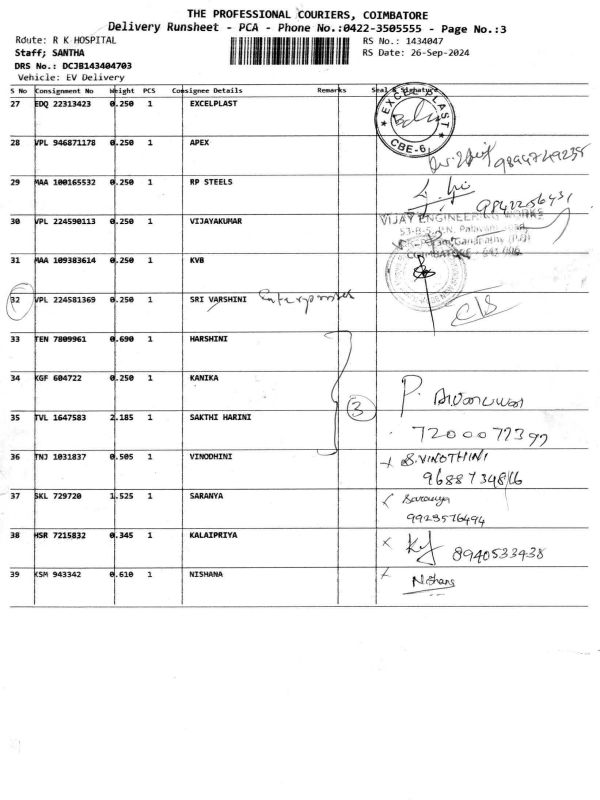 THE PROFESSIONAL COURIERS, COIMBATORE
Delivery Runsheet - PCA - Phone No.:0422-3505555 - Page No.:3
Route: R K HOSPITAL
RS No.: 1434047
Staff; SANTHA
RS Date: 26-Sep-2024
DRS No.: DCJB143404703
Vehicle: EV Delivery
S No Consignment No Weight PCS Consignee Details Remarks Seal & Signature
27 EDQ 22313423 0.250 1 EXCELPLAST
EXCEL PLAST CBE-6
28 VPL 946871178 0.250 1 APEX
9894749235
29 MAA 100165532 0.250 1 RP STEELS
9842256431
30 VPL 224590113 0.250 1 VIJAYAKUMAR
VIJAY ENGINEERING WORKS
COIMBATORE
31 MAA 109383614 0.250 1 KVB
32 VPL 224581369 0.250 1 SRI VARSHINI Enterprises
C/S
33 TEN 7809961 0.690 1 HARSHINI
34 KGF 604722 0.250 1 KANIKA
3
35 TVL 1647583 2.185 1 SAKTHI HARINI
7200077397
36 TNJ 1031837 0.505 1 VINODHINI S.VINOTHINI
9688734816
37 SKL 729720 1.525 1 SARANYA Saranya
9929576494
38 HSR 7215832 0.345 1 KALAIPRIYA 8940533438
39 KSM 943342 0.610 1 NISHANA Nishana